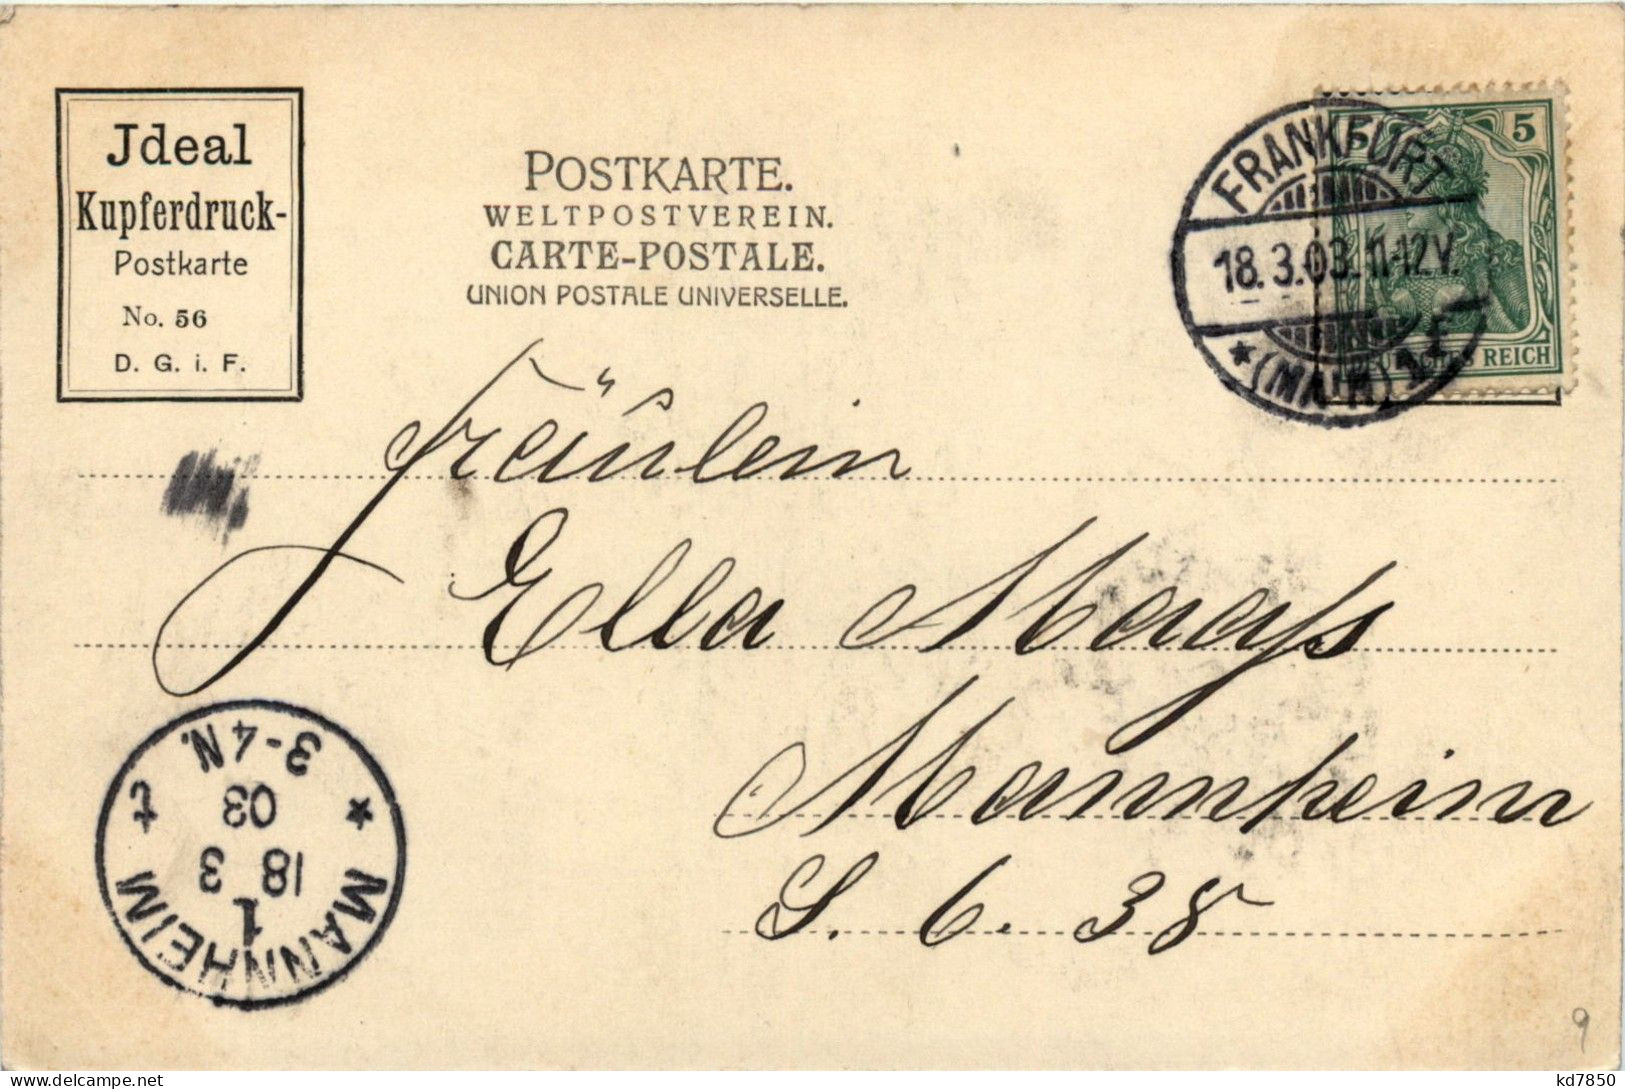 Jdeal
Kupferdruck-
Postkarte
No. 56
D. G. i. F.
POSTKARTE.
WELTPOSTVEREIN.
CARTE-POSTALE.
UNION POSTALE UNIVERSELLE.
FRANKFURT
18.3.03.11-12V.
*(MAIN)1.F
5
5
DEUTSCHES REICH
Fräulein
Ella Maaß
Mannheim
S. 6. 38
MANNHEIM
1
18 3
03
3-4N.
9
kd7850